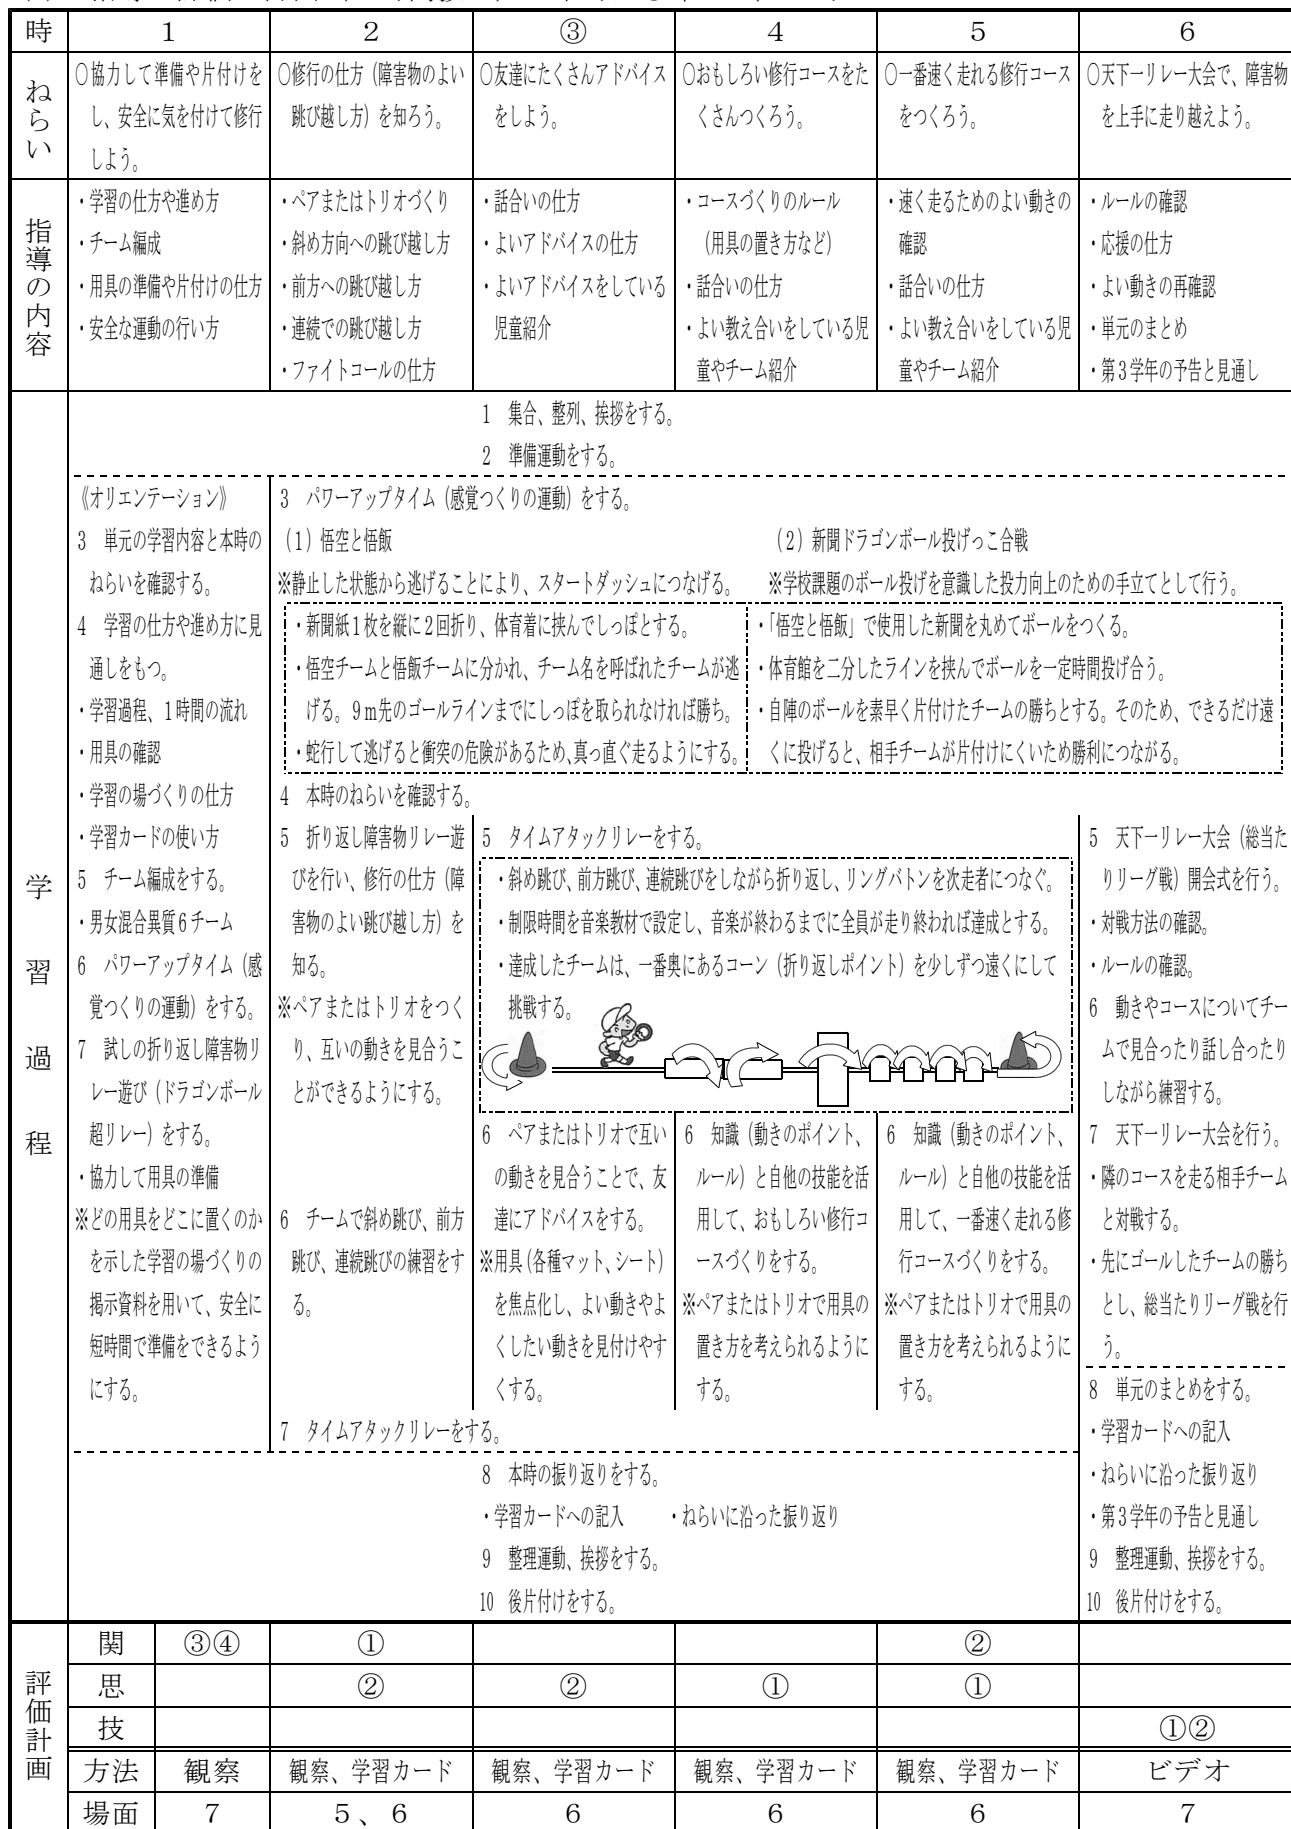 時 1 2 ③ 4 5 6
ねらい
○協力して準備や片付けを
し、安全に気を付けて修行
しよう。
○修行の仕方（障害物のよい
跳び越し方）を知ろう。
○友達にたくさんアドバイス
をしよう。
○おもしろい修行コースをた
くさんつくろう。
○一番速く走れる修行コース
をつくろう。
○天下一リレー大会で、障害物
を上手に走り越えよう。
指導の内容
・学習の仕方や進め方
・チーム編成
・用具の準備や片付けの仕方
・安全な運動の行い方
・ペアまたはトリオづくり
・斜め方向への跳び越し方
・前方への跳び越し方
・連続での跳び越し方
・ファイトコールの仕方
・話合いの仕方
・よいアドバイスの仕方
・よいアドバイスをしている
児童紹介
・コースづくりのルール
（用具の置き方など）
・話合いの仕方
・よい教え合いをしている児
童やチーム紹介
・速く走るためのよい動きの
確認
・話合いの仕方
・よい教え合いをしている児
童やチーム紹介
・ルールの確認
・応援の仕方
・よい動きの再確認
・単元のまとめ
・第3学年の予告と見通し
学習過程
1 集合、整列、挨拶をする。
2 準備運動をする。
《オリエンテーション》
3 単元の学習内容と本時の
ねらいを確認する。
4 学習の仕方や進め方に見
通しをもつ。
・学習過程、1時間の流れ
・用具の確認
・学習の場づくりの仕方
・学習カードの使い方
5 チーム編成をする。
・男女混合異質6チーム
6 パワーアップタイム（感
覚つくりの運動）をする。
7 試しの折り返し障害物リ
レー遊び（ドラゴンボール
超リレー）をする。
・協力して用具の準備
※どの用具をどこに置くのか
を示した学習の場づくりの
掲示資料を用いて、安全に
短時間で準備をできるよう
にする。
3 パワーアップタイム（感覚つくりの運動）をする。
（1）悟空と悟飯
※静止した状態から逃げることにより、スタートダッシュにつなげる。
・新聞紙1枚を縦に2回折り、体育着に挟んでしっぽとする。
・悟空チームと悟飯チームに分かれ、チーム名を呼ばれたチームが逃
げる。9m先のゴールラインまでにしっぽを取られなければ勝ち。
・蛇行して逃げると衝突の危険があるため、真っ直ぐ走るようにする。
（2）新聞ドラゴンボール投げっこ合戦
※学校課題のボール投げを意識した投力向上のための手立てとして行う。
・「悟空と悟飯」で使用した新聞を丸めてボールをつくる。
・体育館を二分したラインを挟んでボールを一定時間投げ合う。
・自陣のボールを素早く片付けたチームの勝ちとする。そのため、できるだけ遠
くに投げると、相手チームが片付けにくいため勝利につながる。
4 本時のねらいを確認する。
5 折り返し障害物リレー遊
びを行い、修行の仕方（障
害物のよい跳び越し方）を
知る。
※ペアまたはトリオをつく
り、互いの動きを見合うこ
とができるようにする。
6 チームで斜め跳び、前方
跳び、連続跳びの練習をす
る。
5 タイムアタックリレーをする。
・斜め跳び、前方跳び、連続跳びをしながら折り返し、リングバトンを次走者につなぐ。
・制限時間を音楽教材で設定し、音楽が終わるまでに全員が走り終われば達成とする。
・達成したチームは、一番奥にあるコーン（折り返しポイント）を少しずつ遠くにして
挑戦する。
6 ペアまたはトリオで互い
の動きを見合うことで、友
達にアドバイスをする。
※用具（各種マット、シート）
を焦点化し、よい動きやよ
くしたい動きを見付けやす
くする。
6 知識（動きのポイント、
ルール）と自他の技能を活
用して、おもしろい修行コ
ースづくりをする。
※ペアまたはトリオで用具の
置き方を考えられるように
する。
6 知識（動きのポイント、
ルール）と自他の技能を活
用して、一番速く走れる修
行コースづくりをする。
※ペアまたはトリオで用具の
置き方を考えられるように
する。
7 タイムアタックリレーをする。
5 天下一リレー大会（総当た
りリーグ戦）開会式を行う。
・対戦方法の確認。
・ルールの確認。
6 動きやコースについてチー
ムで見合ったり話し合ったり
しながら練習する。
7 天下一リレー大会を行う。
・隣のコースを走る相手チーム
と対戦する。
・先にゴールしたチームの勝ち
とし、総当たりリーグ戦を行
う。
8 単元のまとめをする。
・学習カードへの記入
・ねらいに沿った振り返り
・第3学年の予告と見通し
9 整理運動、挨拶をする。
10 後片付けをする。
8 本時の振り返りをする。
・学習カードへの記入 ・ねらいに沿った振り返り
9 整理運動、挨拶をする。
10 後片付けをする。
評価計画
関 ③④ ① ②
思 ② ② ① ①
技 ①②
方法 観察 観察、学習カード 観察、学習カード 観察、学習カード 観察、学習カード ビデオ
場面 7 5、6 6 6 6 7